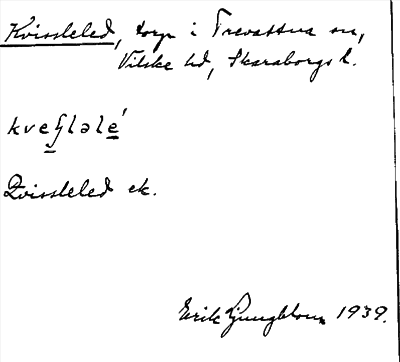 Kvissleled, torp i Trevattna sn,
Vilske hd, Skaraborgs l.
kveʂlәle´
Qvissleled ek.
Erik Ljungblom 1939.